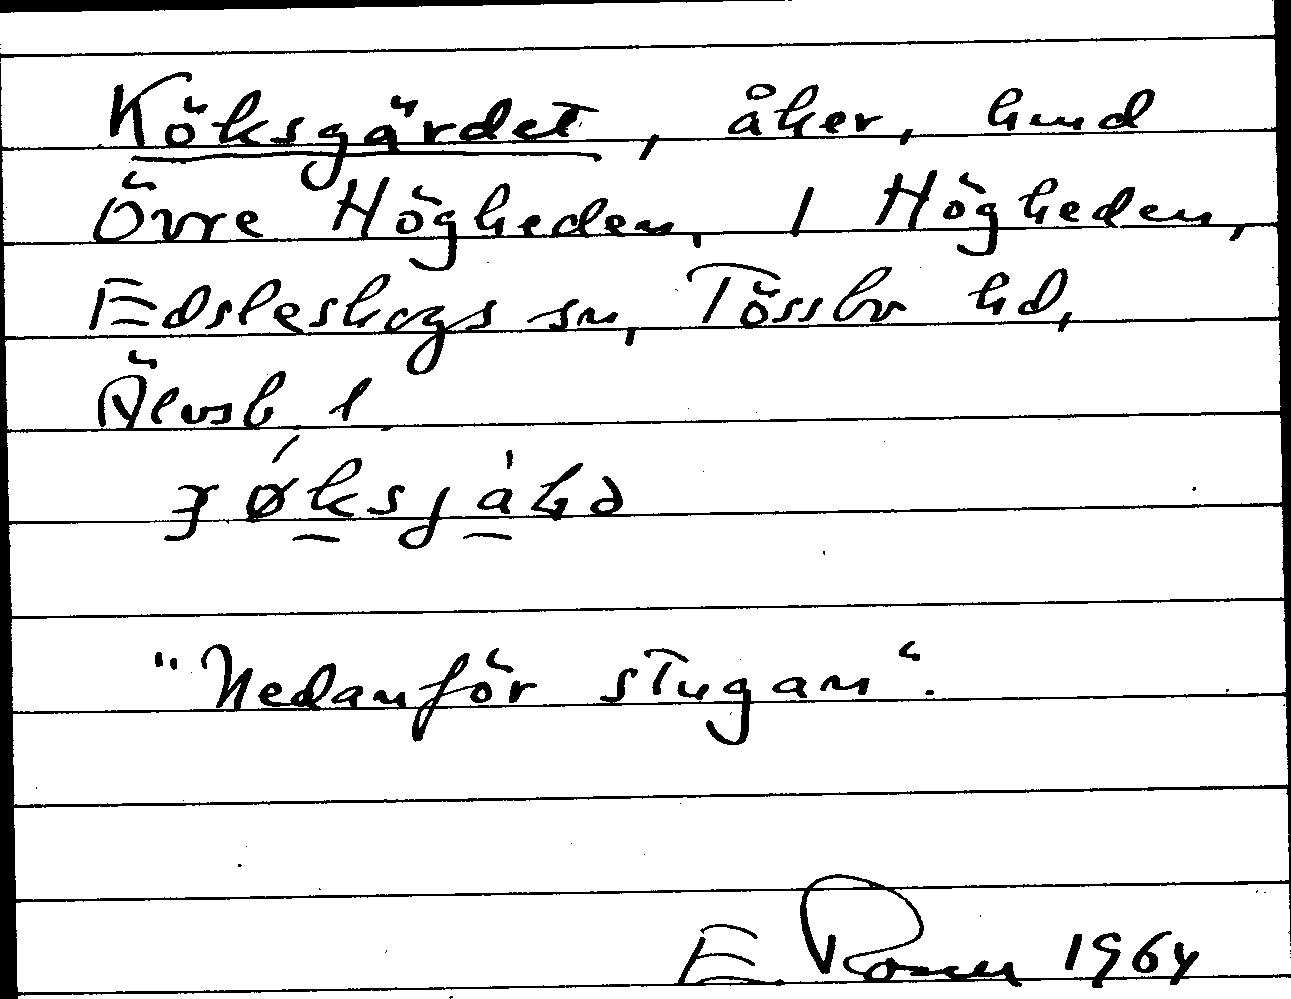 Köksgärdet, åker, hmd
Övre Högheden, 1 Högheden,
Edsleskogs sn, Tössbo hd,
Älvsb. l.
"Nedanför stugan".
E. 1964